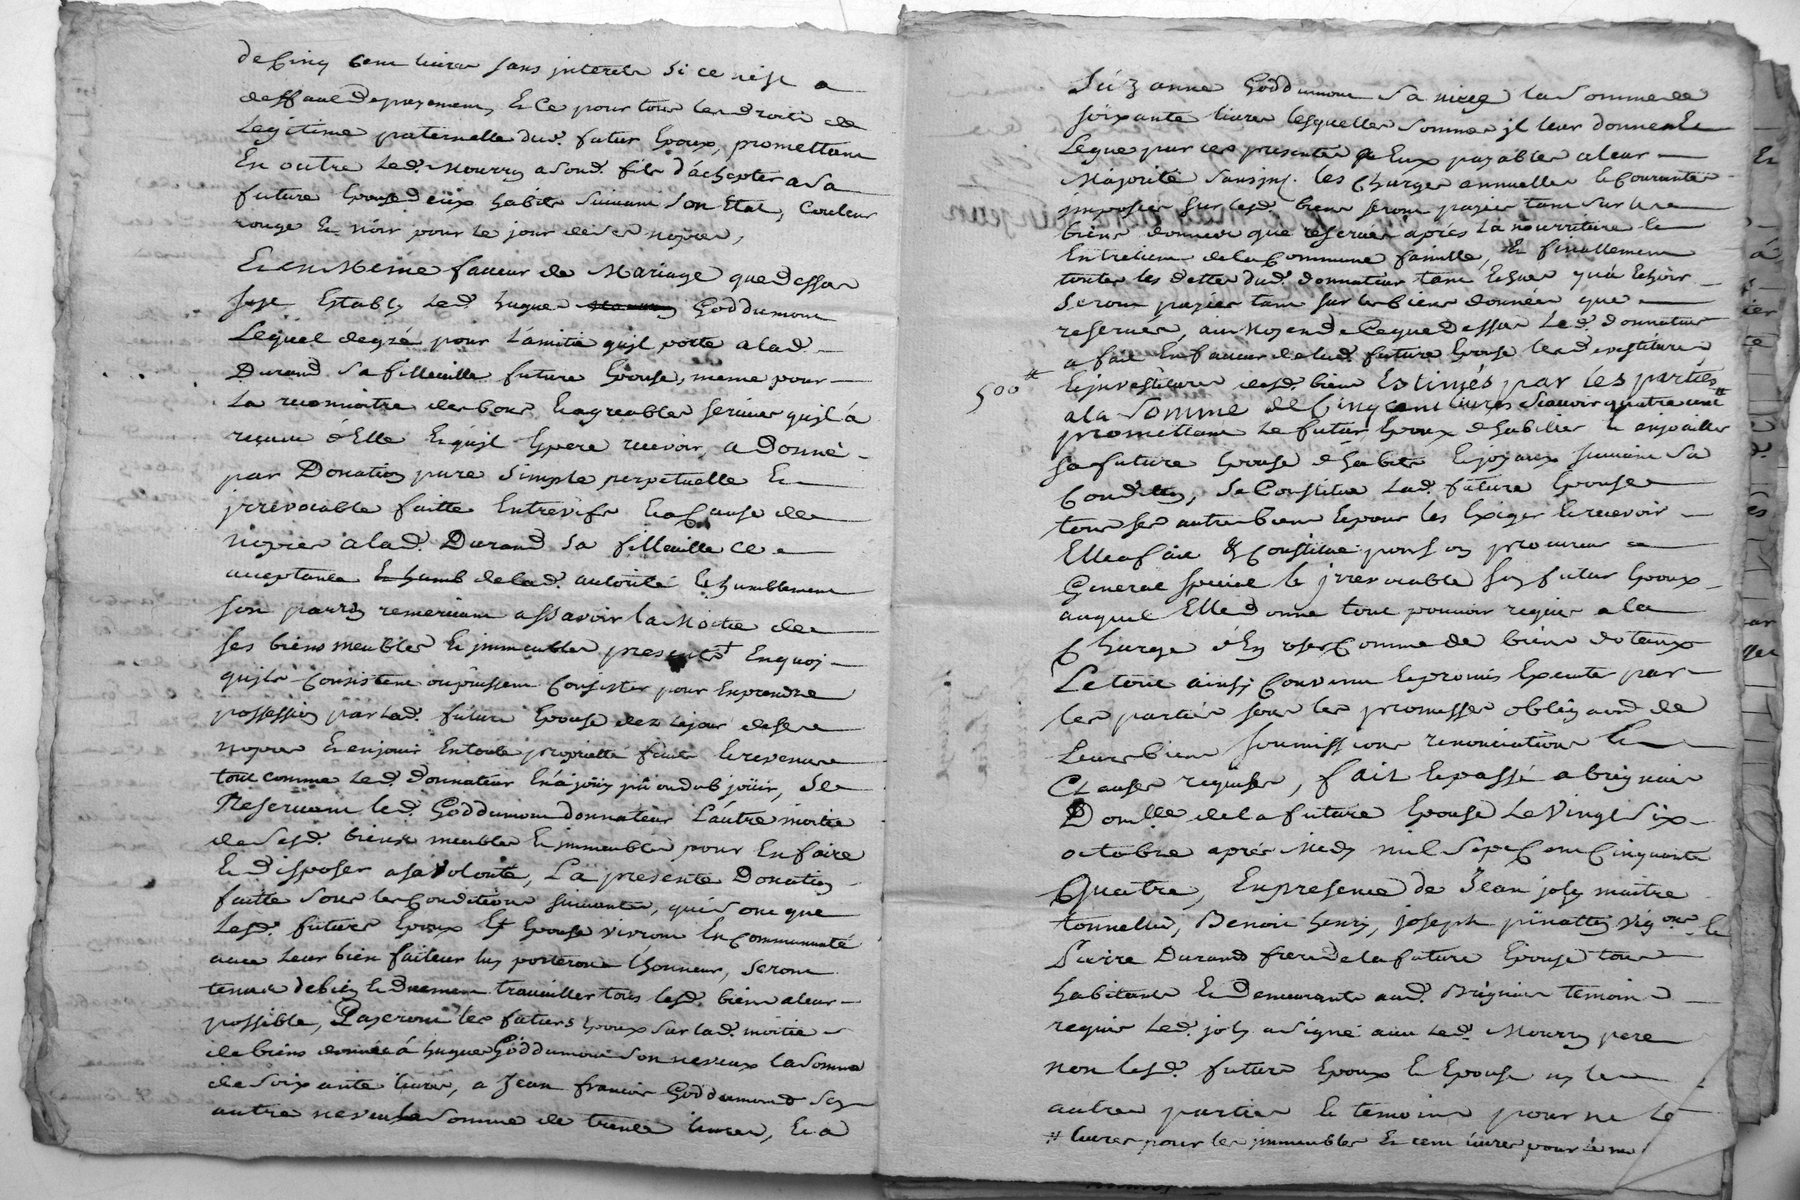 de Cinq Cent livres sans interets si ce n'est a
deffaut de payement, Et Ce pour tous les droits de
Legitime paternelle dud. futur Epoux, promettant
En outre Led. Mourry a sond. fils d'achepter a sa
future Epouse deux habits suivant son Etat, Couleur
rouge Et noir pour le jour de ses nopces,
Et en Meme faveur de Mariage que dessus
s'est Estably Led. hugue Goddumont
Lequel de gré pour L'amitié qu'il porte a lad.
Durand sa filleulle future Epouse, meme pour
La reconnoitre des bons Et agreables services qu'il á
reçeu d'Elle Et qu'il Espere recevoir, a Donné
par Donation pure simple perpetuelle Et
jrrevocable faitte Entrevifs Et a Cause de
nopces a lad. Durand sa filleulle ce
acceptante de lad. autorité Et humblement
son parrin remerciant assavoir la Moitié de
ses biens meubles Et jmmeubles presents En quoy
qu'ils Consistent ou puissent Consister pour En prendre
possession par Lad. future Epouse dez le jour de ses
nopces Et en jouir En toute proprietté fruits Et revenus
tout comme Led. donnateur En a jouy pû ou dub joüir, Se
Reservant led. Goddumont donnateur L'autre moitié
de sesd. biens meubles Et jmmeubles pour En faire
Et disposer a sa Volonté, La presente Donation
faitte sous les Conditions suivantes, qui sont que
Lesd. futurs Epoux Et Epouse vivront En Communauté
avec Leur bien faiteur luy porteront L'honneur, seront
tenus de bien Et duement travailler tous lesd. biens a leur
possible, Payeront les futurs Epoux sur lad. moitié
de biens donnée á hugue Goddumont son neveux la somme
de soixante livres, a Jean francois Goddumond son
autre neveu la somme de trente livres, Et a
Suzanne Goddumont sa niece la somme de
soixante livres lesquelles sommes jl leur donne Et
Legue par ces presentes Eux payables a leur
Majorité sans jnt. les Charges annuelles Et Courantes
jmposées sur lesd. biens seront payées tant sur les
biens donnés que reservés aprés La nourriture Et
Entretien de la Commune famille, Et finallement
toutes les dettes dud. donnateur tant Echues qu'a Echoir
seront payées tant sur les biens donnés que
reservés, au Moyen de Ce que Dessus Led. donnateur
a fait En faveur de lad. future Epouse les devestitures
500# Et jnvestitures desd. biens Estimés par les parties
a la Somme de Cinq cent livres scavoir quatre cent #
promettant Le futur Epoux d'habiller Et enjoailler
sa future Epouse d'habits Et joyaux suivant sa
Condition, Se Constitue Lad. future Epouse
tous ses autres biens Et pour les Exiger Et recevoir
Elle a fait Et Constitué pour son procureur
General special Et jrrevocable son futur Epoux
auquel Elle donne tout pouvoir requis a la
Charge d'En user Comme de biens dotaux
Le tout ainsi Convenu Et promis Executer par
les parties sous les promesses obligaõns de
Leurs biens soumissions renonciations Et
Clauses requises, fait Et passé a brignais
Domlle de la future Epouse Le Vingt Six
octobre aprés Midy mil Sept Cent Cinquante
Quatre, En presence de Jean joly maitre
tonnellier, Benoit henry, joseph pinattin vignons Et
Pierre Durand frere de la future Epouse tous
habitants Et demeurants aud. Brignais temoins
requis Led. joly a signé avec Led. Mourry pere
non lesd. futurs Epoux Et Epouse ny les
autres parties Et temoins pour ne le
# livres pour les jmmeubles Et cent livres pour